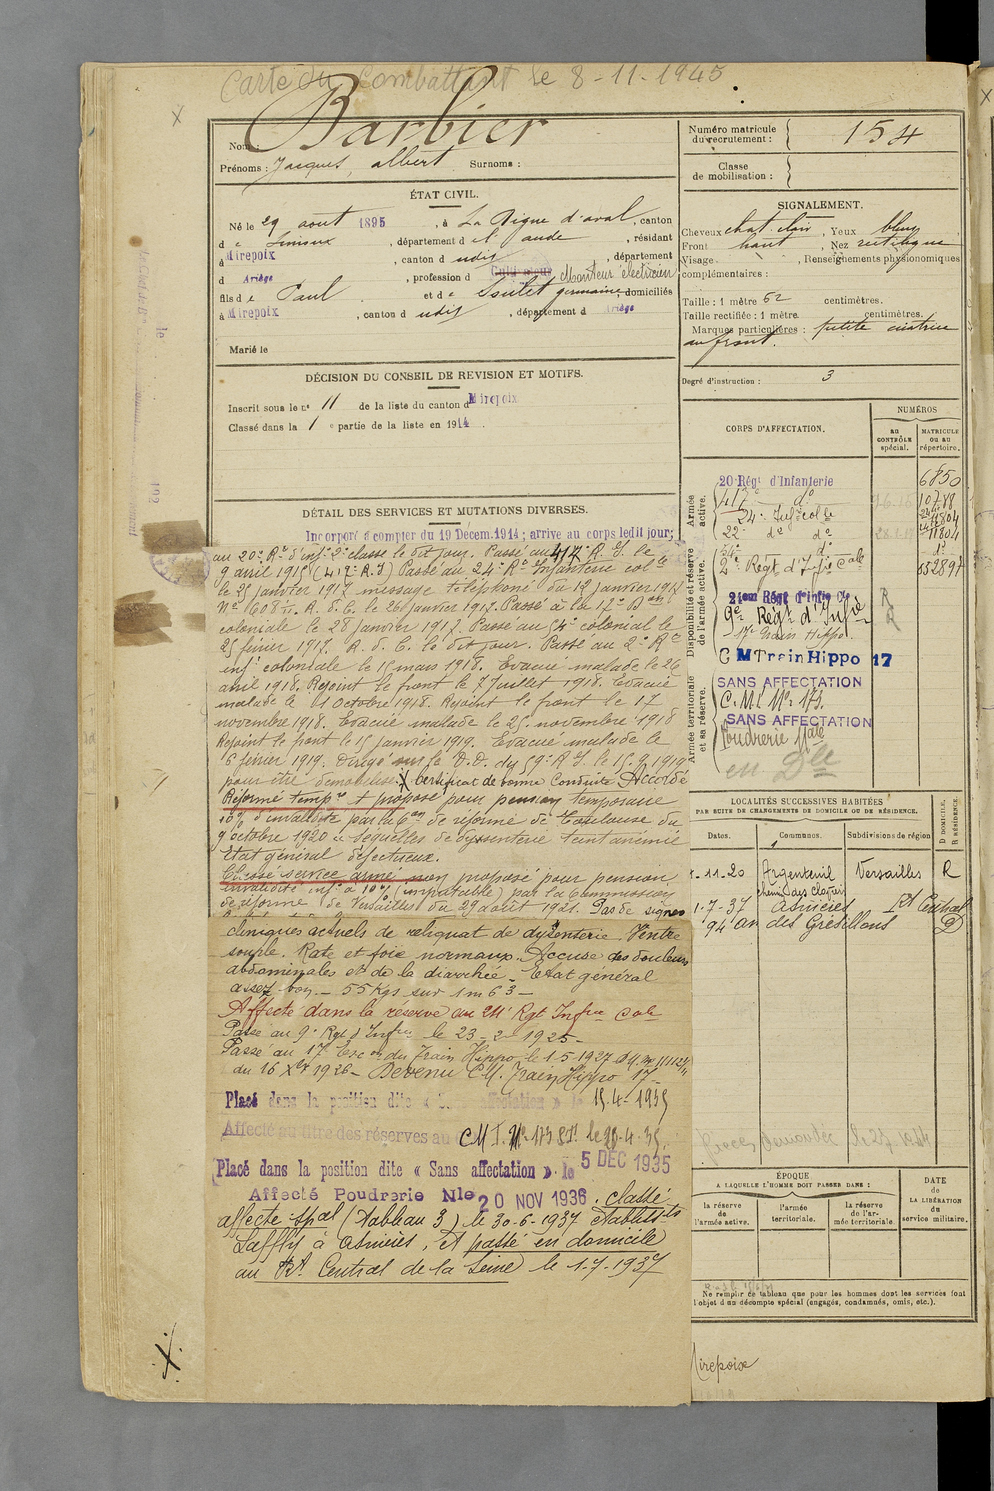 Carte du Combattant le 8-11-1945
Barbier
Nom :
Prénoms : Jacques, albert Surnoms :
ÉTAT CIVIL.
Né le 29 aout 1895, à La Digue d'aval, canton
d e Limoux, département d e l'aude, résidant
à Mirepoix, canton d udit, département
d Ariège, profession d Cultivateur Monteur électricien
fils d e Paul et de Soulet germaine, domiciliés
à Mirepoix, canton d udit, département d Ariège
Marié le
DÉCISION DU CONSEIL DE REVISION ET MOTIFS.
Inscrit sous le n° 11 de la liste du canton d Mirepoix
Classé dans la 1 e partie de la liste en 1914.
DÉTAIL DES SERVICES ET MUTATIONS DIVERSES.
Incorporé à compter du 19 Décem. 1914 ; arrive au corps ledit jour;
au 20e Rt d'infie 2e classe le dit jour. Passé au 417 R. I. le
9 avril 1915 (417e R.I) Passé au 24e Rt Infanterie colle
le 25 janvier 1917 message téléphoné du 12 janvier 1917
N° 608 R. d. C. le 26 janvier 1917. Passé à la 17e Bon
coloniale le 28 janvier 1917. Passé au 54e colonial le
25 février 1917. R. d. C. le dit jour. Passé au 2e Rt
infie coloniale le 15 mars 1918. Evacué malade le 26
avril 1918. Rejoint le front le 7 Juillet 1918. Evacué
malade le 11 Octobre 1918. Rejoint le front le 17
novembre 1918. Evacué malade le 25 novembre 1918
Rejoint le front le 15 Janvier 1919. Evacué malade le
6 février 1919. Dirigé sur le D.D. du 59e R.I. le 15.9.1919
pour être démobilisé. X Certificat de bonne Conduite Accordé
Réformé tempre et proposé pour pension temporaire
10% d'invalidité par la 6e con de réforme de Toulouse du
9 octobre 1920 : Séquelles de dysenterie teint anémié
Etat général défectueux.
Classé service armé non proposé pour pension
invalidité infre à 10% (imputable) par la Commission
de réforme de Versailles du 29 août 1921. Pas de signes
cliniques actuels de reliquat de dysenterie. Ventre
souple. Rate et foie normaux. Accuse des douleurs
abdominales et de la diarrhée - Etat général
assez bon. - 55 Kgs sur 1m63 -
Affecté dans la réserve au 21e Rgt Infrie Cole
Passé au 9e Rgt d'Infrie le 23-2-1925-
Passé au 17e Escon du Train Hippo le 1-5-1927
du 16 Xbre 1926 - Devenu CM. Train Hippo 17 -
Placé dans la position dite « Sans affectation » le 15.4-1935
Affecté au titre des réserves au CM I. N° 173
Placé dans la position dite « Sans affectation » le 5 DEC 1935
Affecté Poudrerie Nle 20 NOV 1936. classé
affecté spal (Tableau 3) le 30-6-1937 Etablissts
Laffly à Asnières, et passé en domicile
au Rt Central de la Seine le 1.7-1937
Numéro matricule du recrutement : 154
Classe de mobilisation :
SIGNALEMENT.
Cheveux chat. clair, Yeux bleus
Front haut, Nez rectiligne
Visage , Renseignements physionomiques
complémentaires :
Taille : 1 mètre 62 centimètres.
Taille rectifiée : 1 mètre centimètres.
Marques particulières : petite cicatrice
au front.
Degré d'instruction : 3
CORPS D'AFFECTATION.
NUMÉROS
AU CONTRÔLE spécial.
MATRICULE OU AU répertoire.
Armée active.
Disponibilité et réserve de l'armée active.
Armée territoriale et sa réserve.
20 Régt d'Infanterie 6850
417e do 10788
24e Infie colle 11804
22e do do 11804
54e do do
2e Régt d'Infie Cole
21eme Régt d'Infie Cle R
9e Régt d'Infie R
17e Train Hippo.
C M Train Hippo 17
SANS AFFECTATION
C. M. I. N° 173.
SANS AFFECTATION
Poudrerie Nale
en Dle
LOCALITÉS SUCCESSIVES HABITÉES
PAR SUITE DE CHANGEMENTS DE DOMICILE OU DE RÉSIDENCE.
Dates. Communes. Subdivisions de région
D DOMICILE, R RÉSIDENCE.
11-20 Argenteuil Versailles R
1-7-37 Asnières Rt Central D
94 av des Grésillons
ÉPOQUE
A LAQUELLE L'HOMME DOIT PASSER DANS :
la réserve de l'armée active.
l'armée territoriale.
la réserve de l'armée territoriale.
DATE de LA LIBÉRATION du service militaire.
Ne remplir ce tableau que pour les hommes dont les services font
l'objet d'un décompte spécial (engagés, condamnés, omis, etc.).
Mirepoix